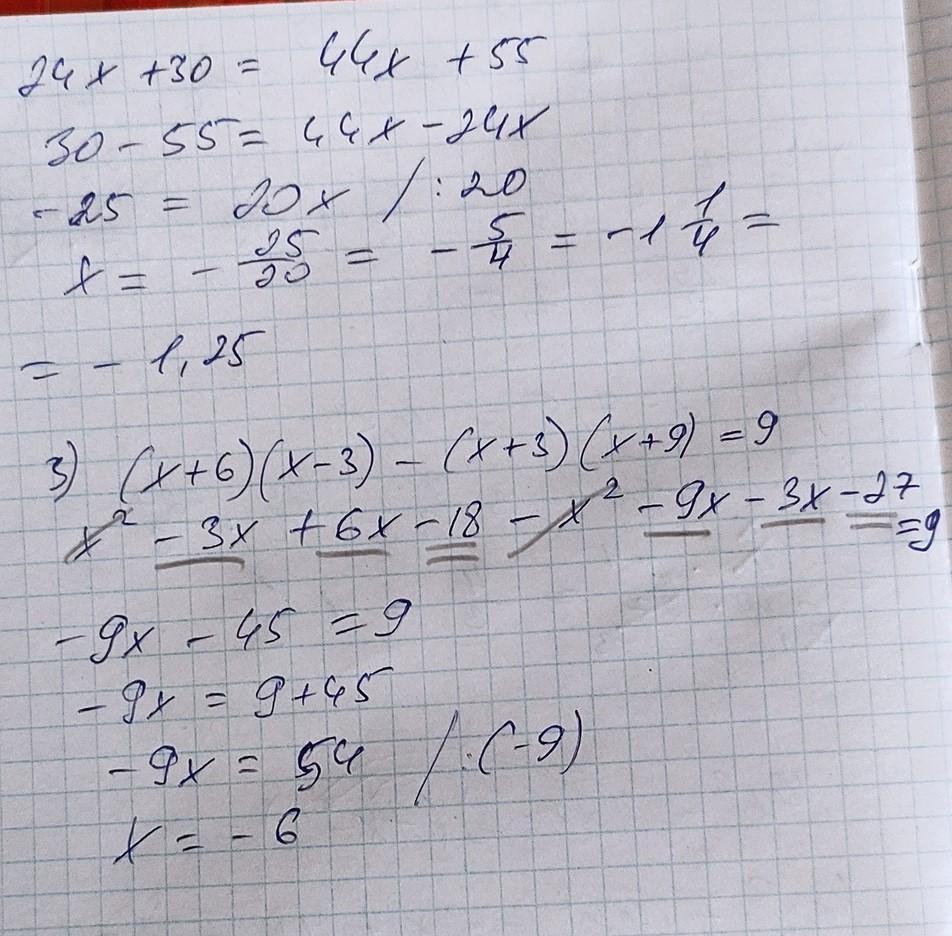 24x + 30 = 44x + 55
30 - 55 = 44x - 24x
-25 = 20x / : 20
x = - 25/20 = - 5/4 = -1 1/4 =
= - 1,25
3) (x+6)(x-3) - (x+3)(x+9) = 9
x² - 3x + 6x - 18 - x² - 9x - 3x - 27 = 9
-9x - 45 = 9
-9x = 9 + 45
-9x = 54 / : (-9)
x = - 6